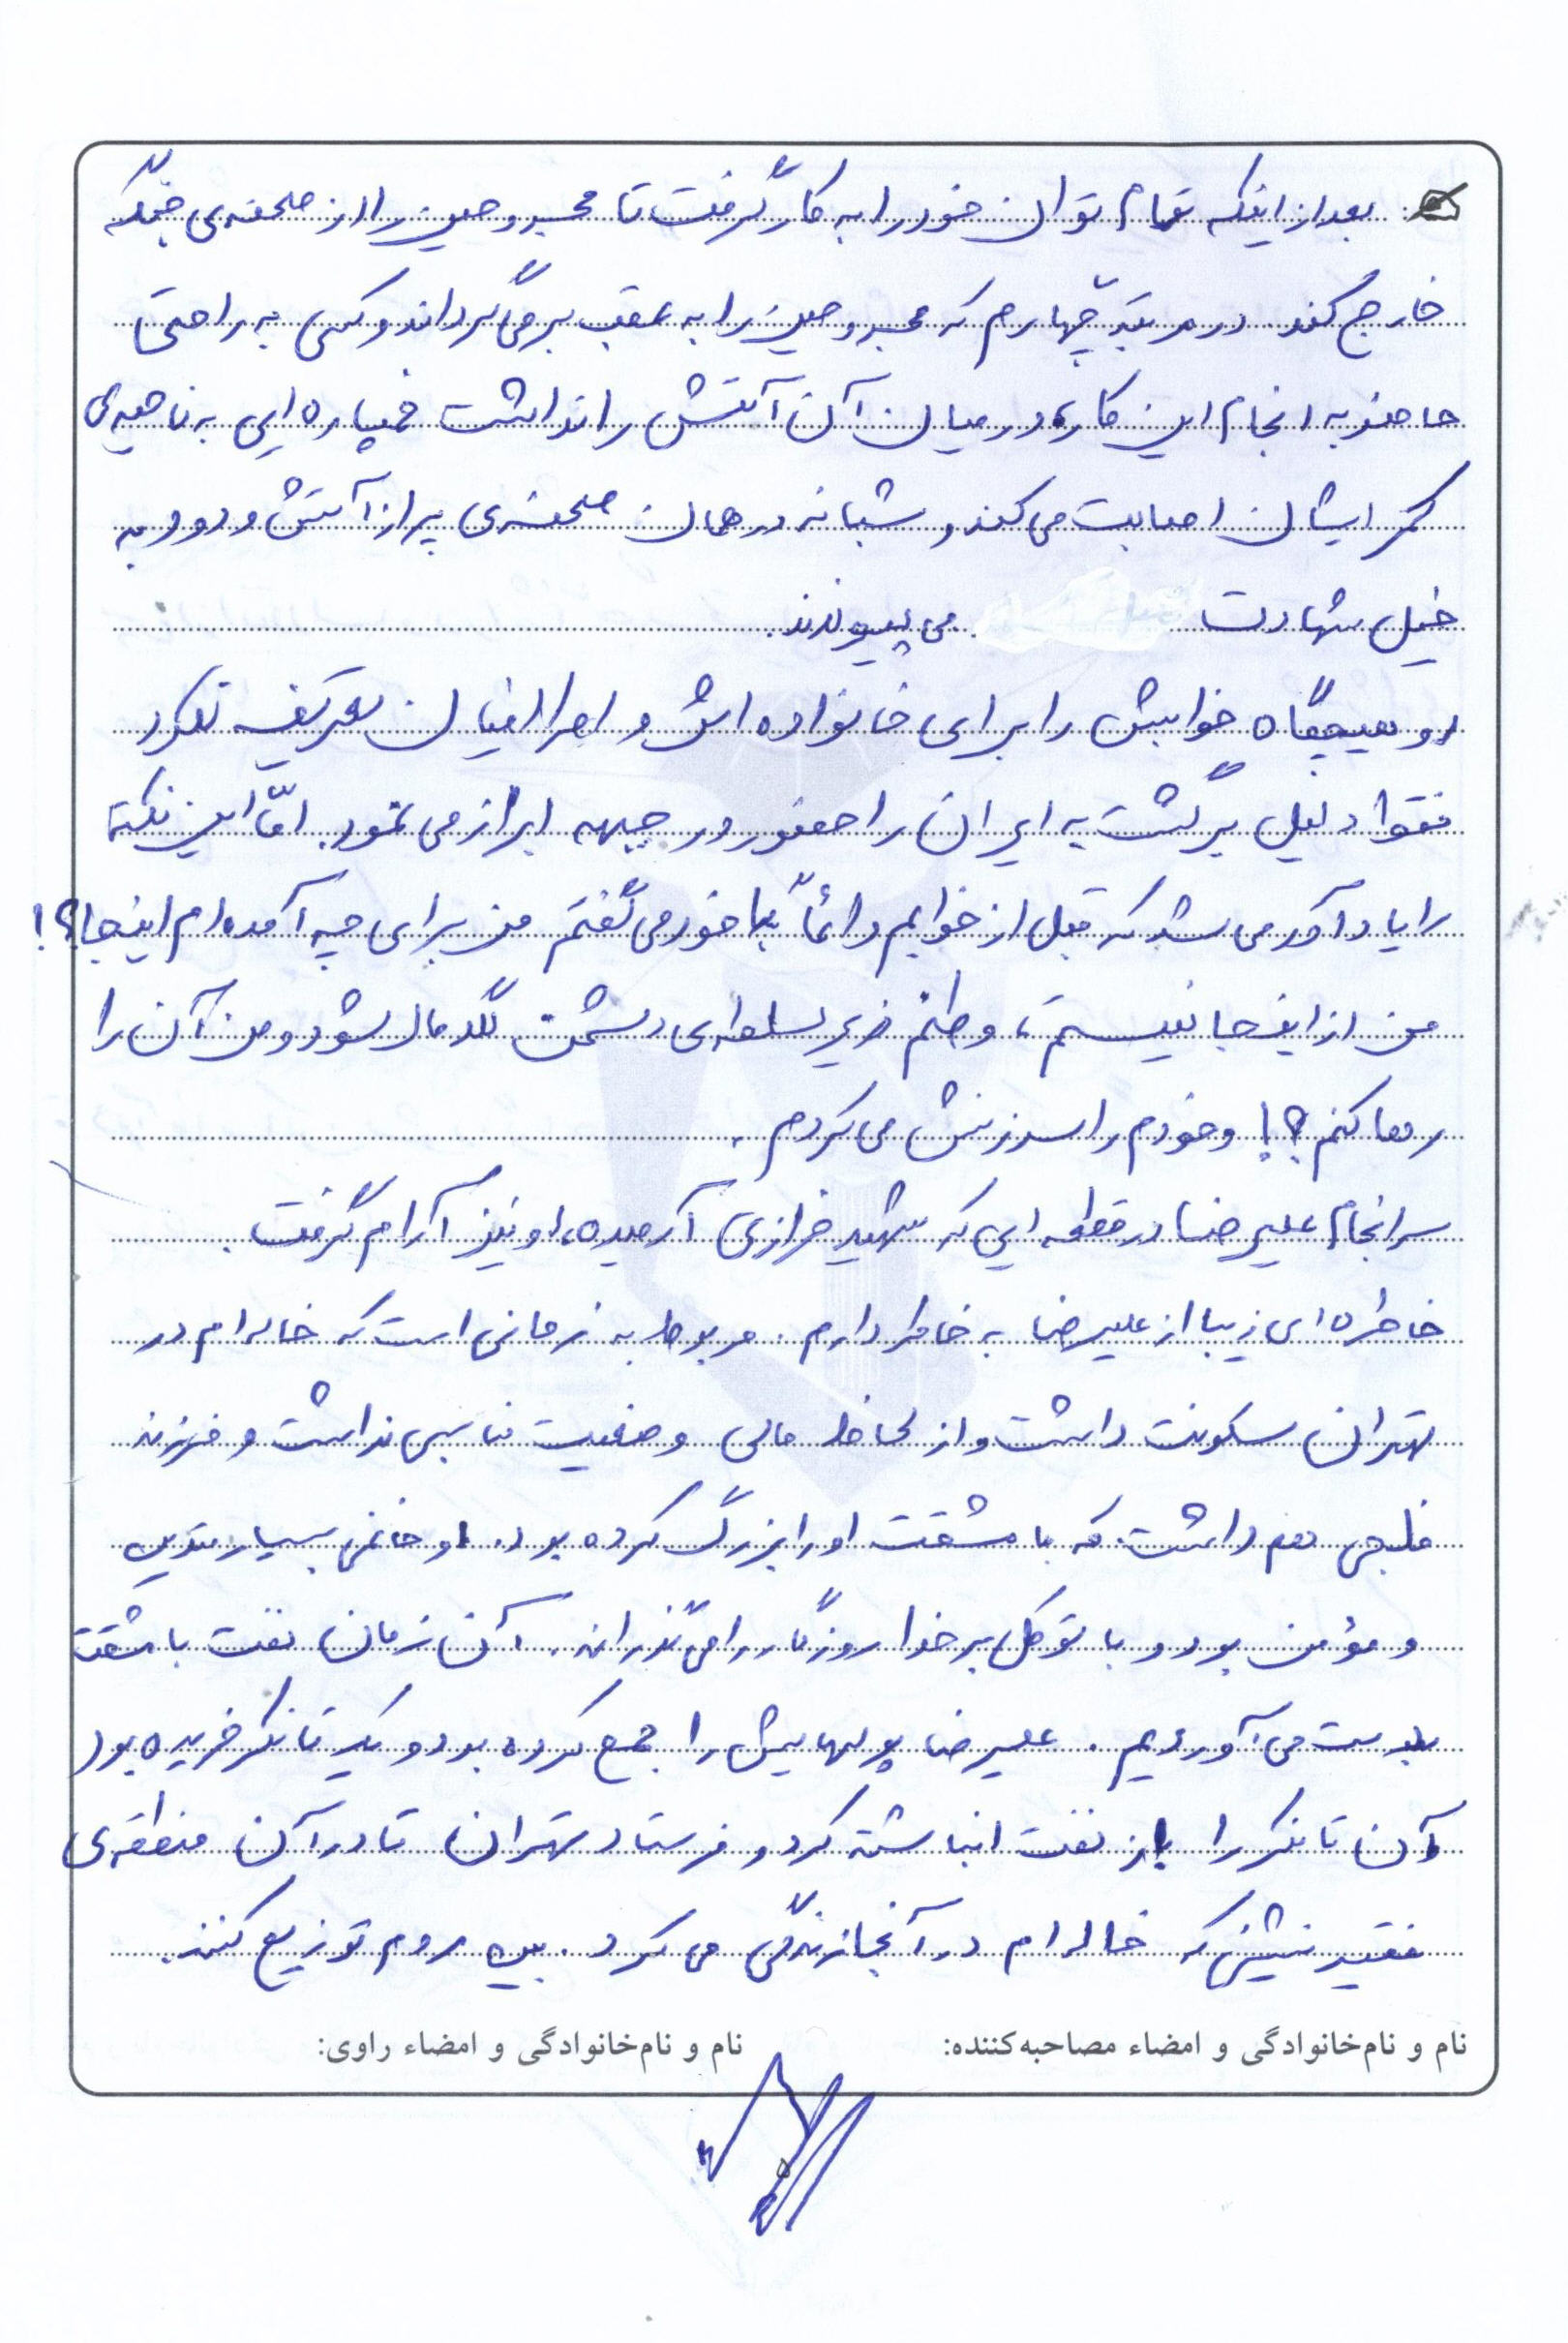 بعد از اینکه تمام توان خود را به کار گرفت تا مجروحین را از صحنه‌ی جنگ
خارج کند. در مرتبه چهارم که مجروحین را به عقب برمی‌گرداند و کسی به راحتی
حاضر به انجام این کار، در میان آن آتش را نداشت خمپاره ایی به ناحیه‌ی
کمر ایشان اصابت می‌کند و شبانه در همان صحنه‌ی پر از آتش و دود به
خیل شهادت می پیوندند.
او هیچگاه خوابش را برای خانواده اش و اطرافیان تعریف نکرد
فقط دلیل برگشت به ایران را حضور در جبهه ابراز می نمود. امّا این نکته
را یادآور می شد که قبل از خوابم دائماً با خود می گفتم من برای چه آمده ام اینجا؟!
من از اینجا نیستم، وطنم زیر سلطه‌ی دشمن لگد مال شود و من آن را
رها کنم؟! و خودم را سرزنش می کردم.
سرانجام علیرضا در قطعه ایی که شهید خرازی آرمیده، او نیز آرام گرفت.
خاطره ای زیبا از علیرضا به خاطر دارم. مربوط به زمانی است که خاله ام در
تهران سکونت داشت و از لحاظ مالی وضعیت مناسبی نداشت و فرزند
فلجی هم داشت. که با مشقت او را بزرگ کرده بود. او خانمی بسیار متدین
و مؤمن بود و با توکل بر خدا روزگار را می گذراند. آن زمان نفت با مشقت
بدست می آوردیم. علیرضا پولهایش را جمع کرده بود و یک تانکر خریده بود
آن تانکر را از نفت انباشته کرد و فرستاد تهران تا در آن منطقه‌ی
فقیر نشینی که خاله ام در آنجا زندگی می کرد. بین مردم توزیع کنند.
نام و نام‌خانوادگی و امضاء مصاحبه‌کننده: نام و نام‌خانوادگی و امضاء راوی: